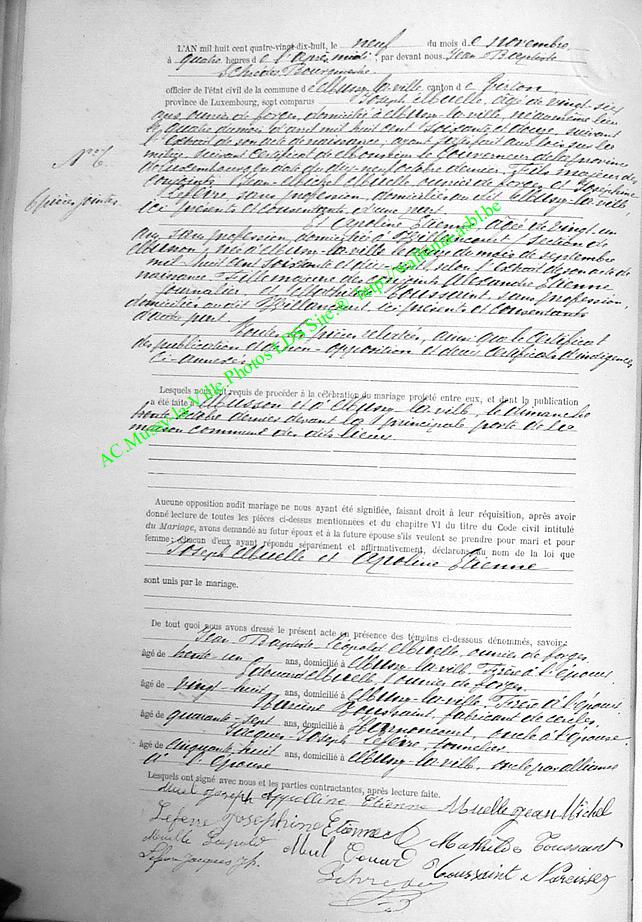 L'AN mil huit cent quatre-vingt-dix-huit, le neuf du mois de novembre
à quatre heures de l'après midi, par devant nous Jean Baptiste
officier de l'état civil de la commune de Mussy-la-ville, canton de Virton,
province de Luxembourg, sont comparus Joseph Muelle, âgé de vingt-six
ans, ouvrier de forges, domicilié à Mussy-la-ville,
le quatre du mois d'avril mil huit cent soixante et douze, suivant
l'extrait de son acte de naissance, ayant satisfait aux lois sur la
milice suivant certificat de Monsieur le Gouverneur de la province
de Luxembourg en date du dix-neuf octobre dernier, fils majeur de
Jean-Michel Muelle, ouvrier de forges et Joséphine
Lefèvre, sans profession, domiciliés au dit Mussy-la-ville,
ici présents et consentants d'une part
N° 6.
6 pièces jointes
Et Apoline Etienne, âgée de vingt-un
ans, sans profession, domiciliée à Willancourt, section de
Musson, née à Mussy-la-ville le douze du mois de septembre
mil-huit cent soixante et dix-sept, selon l'extrait de son acte de
naissance, fille majeure de Alexandre Etienne
journalier et Mathilde Toussaint, sans profession,
domiciliés au dit Willancourt, ici présents et consentants
d'autre part.
Toutes les pièces relatées, ainsi que le certificat
de publication et de non-opposition et deux certificats d'indigence
ci-annexés
Lesquels nous ont requis de procéder à la célébration du mariage projeté entre eux, et dont la publication
a été faite à Musson et à Mussy-la-ville, le dimanche
trente octobre dernier devant la principale porte de la
maison commune des dits lieux
Aucune opposition audit mariage ne nous ayant été signifiée, faisant droit à leur réquisition, après avoir
donné lecture de toutes les pièces ci-dessus mentionnées et du chapitre VI du titre du Code civil intitulé
du Mariage, avons demandé au futur époux et à la future épouse s'ils veulent se prendre pour mari et pour
femme; chacun d'eux ayant répondu séparément et affirmativement, déclarons au nom de la loi que
Joseph Muelle et Apoline Etienne
sont unis par le mariage.
De tout quoi nous avons dressé le présent acte en présence des témoins ci-dessous dénommés, savoir:
Jean Baptiste Léopold Muelle, ouvrier de forges,
âgé de trente-un ans, domicilié à Mussy-la-ville, frère à l'époux
Edouard Muelle, ouvrier de forges,
âgé de vingt-huit ans, domicilié à Mussy-la-ville, frère à l'époux
Narcisse Toussaint, fabricant de cercles,
âgé de quarante-sept ans, domicilié à Harnoncourt, oncle à l'épouse
Jacques-Joseph Lefèvre,
âgé de cinquante-huit ans, domicilié à Mussy-la-ville, oncle par alliance
à l'épouse
Lesquels ont signé avec nous et les parties contractantes, après lecture faite.
Muel Joseph Appolline Etienne Muelle Jean Michel
Lefevre Josephine Etienne A Mathilde Toussaint
Muelle Leopold Muel Edouard Toussaint Narcisse
Lefevre Jacques Jh.
AC.Mussy-la-Ville Photos LDS Site:® http://stallamaf.asbl.be